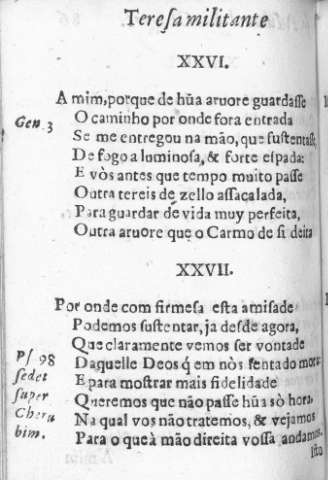 Teresa militante
XXVI.
A mim, porque de hũa aruore guardasse
Gen. 3
O caminho por onde fora entrada
Se me entregou na mão, que sustentasse
De fogo a luminosa, & forte espada:
E vòs antes que tempo muito passe
Outra tereis de zello assacalada,
Para guardar de vida muy perfeita,
Outra aruore que o Carmo de si deita
XXVII.
Por onde com firmesa esta amisade
Podemos sustentar, ja desde agora,
Que claramente vemos ser vontade
Ps 98
sedet
super
Cheru
bim.
Daquelle Deos q̃ em nòs sentado mora
E para mostrar mais fidelidade
Queremos que não passe hũa sò hora,
Na qual vos não tratemos, & vejamos
Para o que à mão direita vossa andamos.
Isto